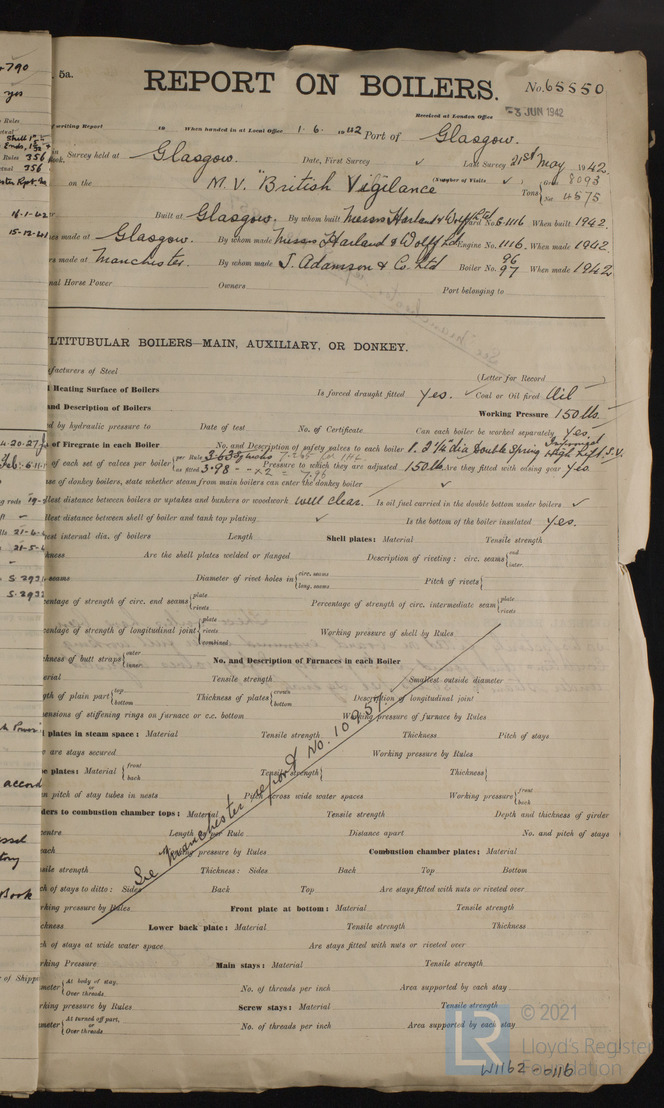 5a.
REPORT ON BOILERS.
No. 65550
Received at London Office
-3 JUN 1942
writing Report 19 When handed in at Local Office 1. 6. 1942 Port of Glasgow.
Survey held at Glasgow. Date, First Survey ✓ Last Survey 21st May 1942
on the M.V. "British Vigilance" (Number of Visits ✓ ) Tons { Gross 8093
Net 4575
Built at Glasgow. By whom built Messrs Harland & Wolff Ltd Yard No. G.1116 When built 1942.
made at Glasgow. By whom made Messrs Harland & Wolff Ltd Engine No. 1116. When made 1942.
made at Manchester. By whom made J. Adamson & Co. Ltd Boiler No. 96 97 When made 1942
Horse Power Owners Port belonging to
MULTITUBULAR BOILERS—MAIN, AUXILIARY, OR DONKEY.
facturers of Steel (Letter for Record
Heating Surface of Boilers Is forced draught fitted yes. Coal or Oil fired Oil
and Description of Boilers Working Pressure 150 lbs.
by hydraulic pressure to Date of test No. of Certificate Can each boiler be worked separately Yes.
of Firegrate in each Boiler No. and Description of safety valves to each boiler 1. 2¼" dia Double Spring High Lift S.V.
of each set of valves per boiler { per Rule
as fitted 3.98 Pressure to which they are adjusted 150 lb. Are they fitted with easing gear yes
se of donkey boilers, state whether steam from main boilers can enter the donkey boiler ✓
llest distance between boilers or uptakes and bunkers or woodwork well clear. Is oil fuel carried in the double bottom under boilers ✓
llest distance between shell of boiler and tank top plating ✓ Is the bottom of the boiler insulated yes.
est internal dia. of boilers Length Shell plates: Material Tensile strength
kness Are the shell plates welded or flanged Description of riveting: circ. seams { end
inter.
seams Diameter of rivet holes in { circ. seams
long. seams Pitch of rivets {
centage of strength of circ. end seams { plate
rivets Percentage of strength of circ. intermediate seam { plate
rivets
centage of strength of longitudinal joint { plate
rivets
combined Working pressure of shell by Rules
kness of butt straps { outer
inner No. and Description of Furnaces in each Boiler
erial Tensile strength Smallest outside diameter
gth of plain part { top
bottom Thickness of plates { crown
bottom Description of longitudinal joint
ensions of stiffening rings on furnace or c.c. bottom Working pressure of furnace by Rules
plates in steam space: Material Tensile strength Thickness Pitch of stays
are stays secured Working pressure by Rules
e plates: Material { front
back Tensile strength { Thickness {
n pitch of stay tubes in nests Pitch across wide water spaces Working pressure { front
back
ders to combustion chamber tops: Material Tensile strength Depth and thickness of girder
centre Length per Rule Distance apart No. and pitch of stays
each Working pressure by Rules Combustion chamber plates: Material
sile strength Thickness: Sides Back Top Bottom
ch of stays to ditto: Sides Back Top Are stays fitted with nuts or riveted over
rking pressure by Rules Front plate at bottom: Material Tensile strength
ckness Lower back plate: Material Tensile strength Thickness
ch of stays at wide water space Are stays fitted with nuts or riveted over
rking Pressure Main stays: Material Tensile strength
meter { At body of stay,
or
Over threads No. of threads per inch Area supported by each stay
rking pressure by Rules Screw stays: Material Tensile strength
meter { At turned off part,
or
Over threads No. of threads per inch Area supported by each stay
See Manchester report No. 10957.
© 2021
Lloyd's Register
Foundation
W1162-0116